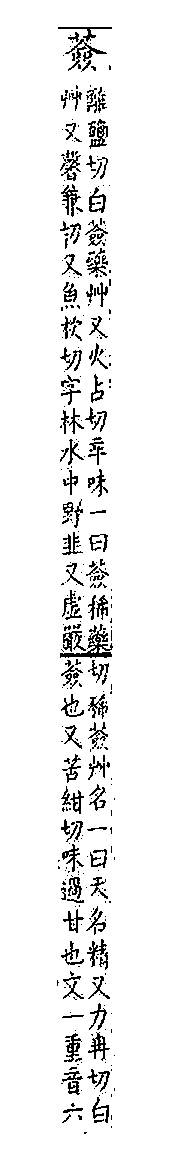 薟
離鹽切白薟藥艸又火占切辛味一曰薟稀藥
艸又馨兼切又魚杴切字林水中野韭又虛嚴
切豨薟艸名一曰天名精又力冉切白
薟也又苦紺切味過甘也文一重音六